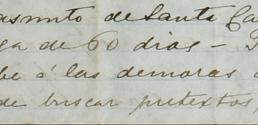 asunto de Santa Ca
ga de 60 dias –
be á las demoras
de buscar pretextos,